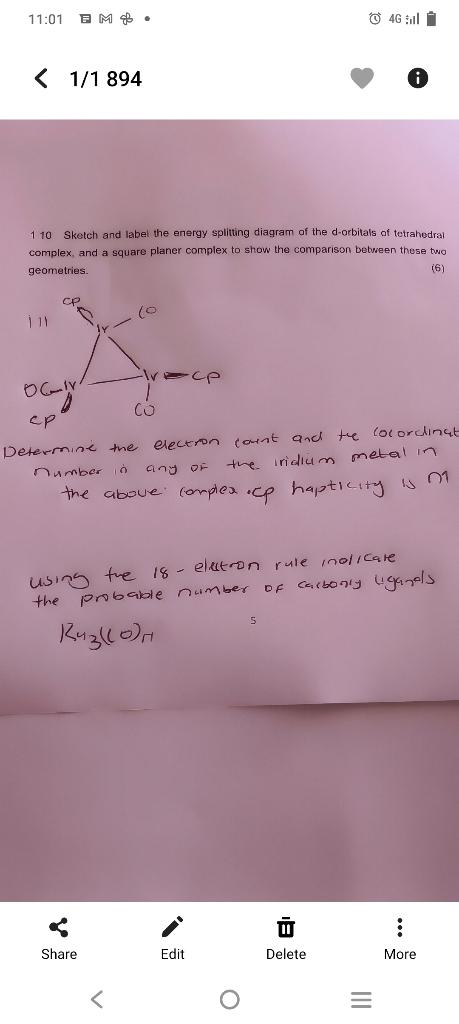 11:01
4G
1/1 894
1 10 Sketch and label the energy splitting diagram of the d-orbitals of tetrahedral
complex, and a square planer complex to show the comparison between these two
geometries. (6)
1 11
CP Ir CO
OC Ir Ir CP
CP CO
Determine the electron count and the cocordinat
number in any of the iridium metal in
the above complex .cp hapticity is
using the 18 - electron rule indicate
the probable number of carbonly ligands
5
Ru3(CO)n
Share Edit Delete More